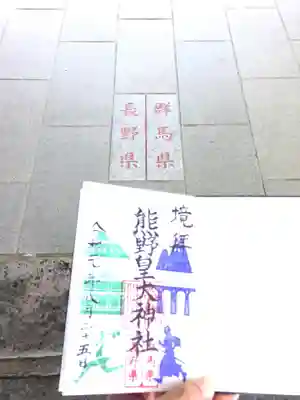 群馬県
長野県
境拝
熊野皇大神社
令和七年八月二十五日